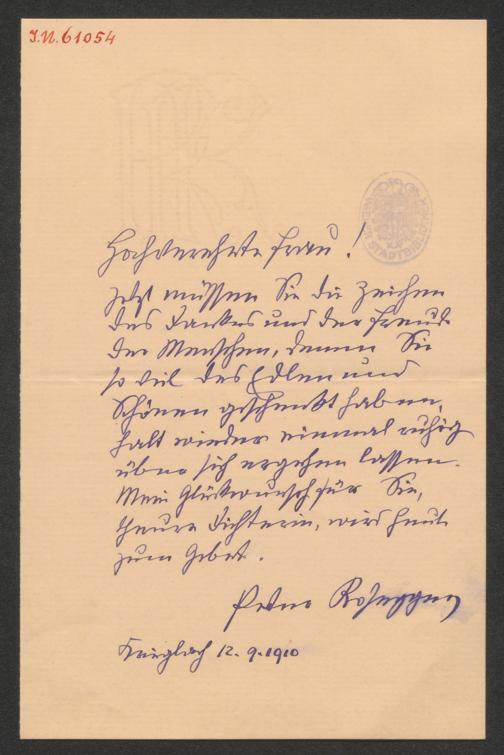 J.N. 61054
WIENER STADTBIBLIOTHEK
Hochverehrte Frau!
Jetzt müssen Sie die Zeichen
des Dankes und der Freude
der Menschen, denen Sie
so viel des Edlen und
Schönen geschenkt haben,
halt wieder einmal ruhig
über sich ergehen lassen.
Mein Glückwunsch für Sie,
theure Dichterin, wird heute
zum Gebet.
Peter Rosegger
Krieglach 12. 9. 1910